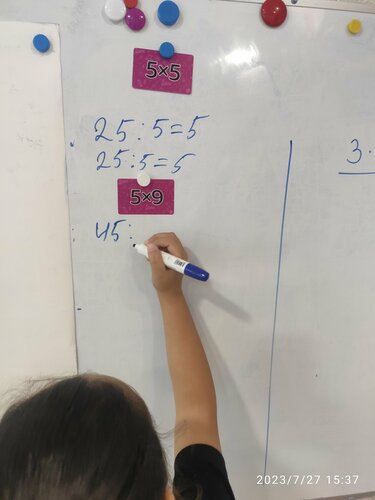 5×5
25:5=5
25:5=5
5×9
45:
3·
2023/7/27 15:37